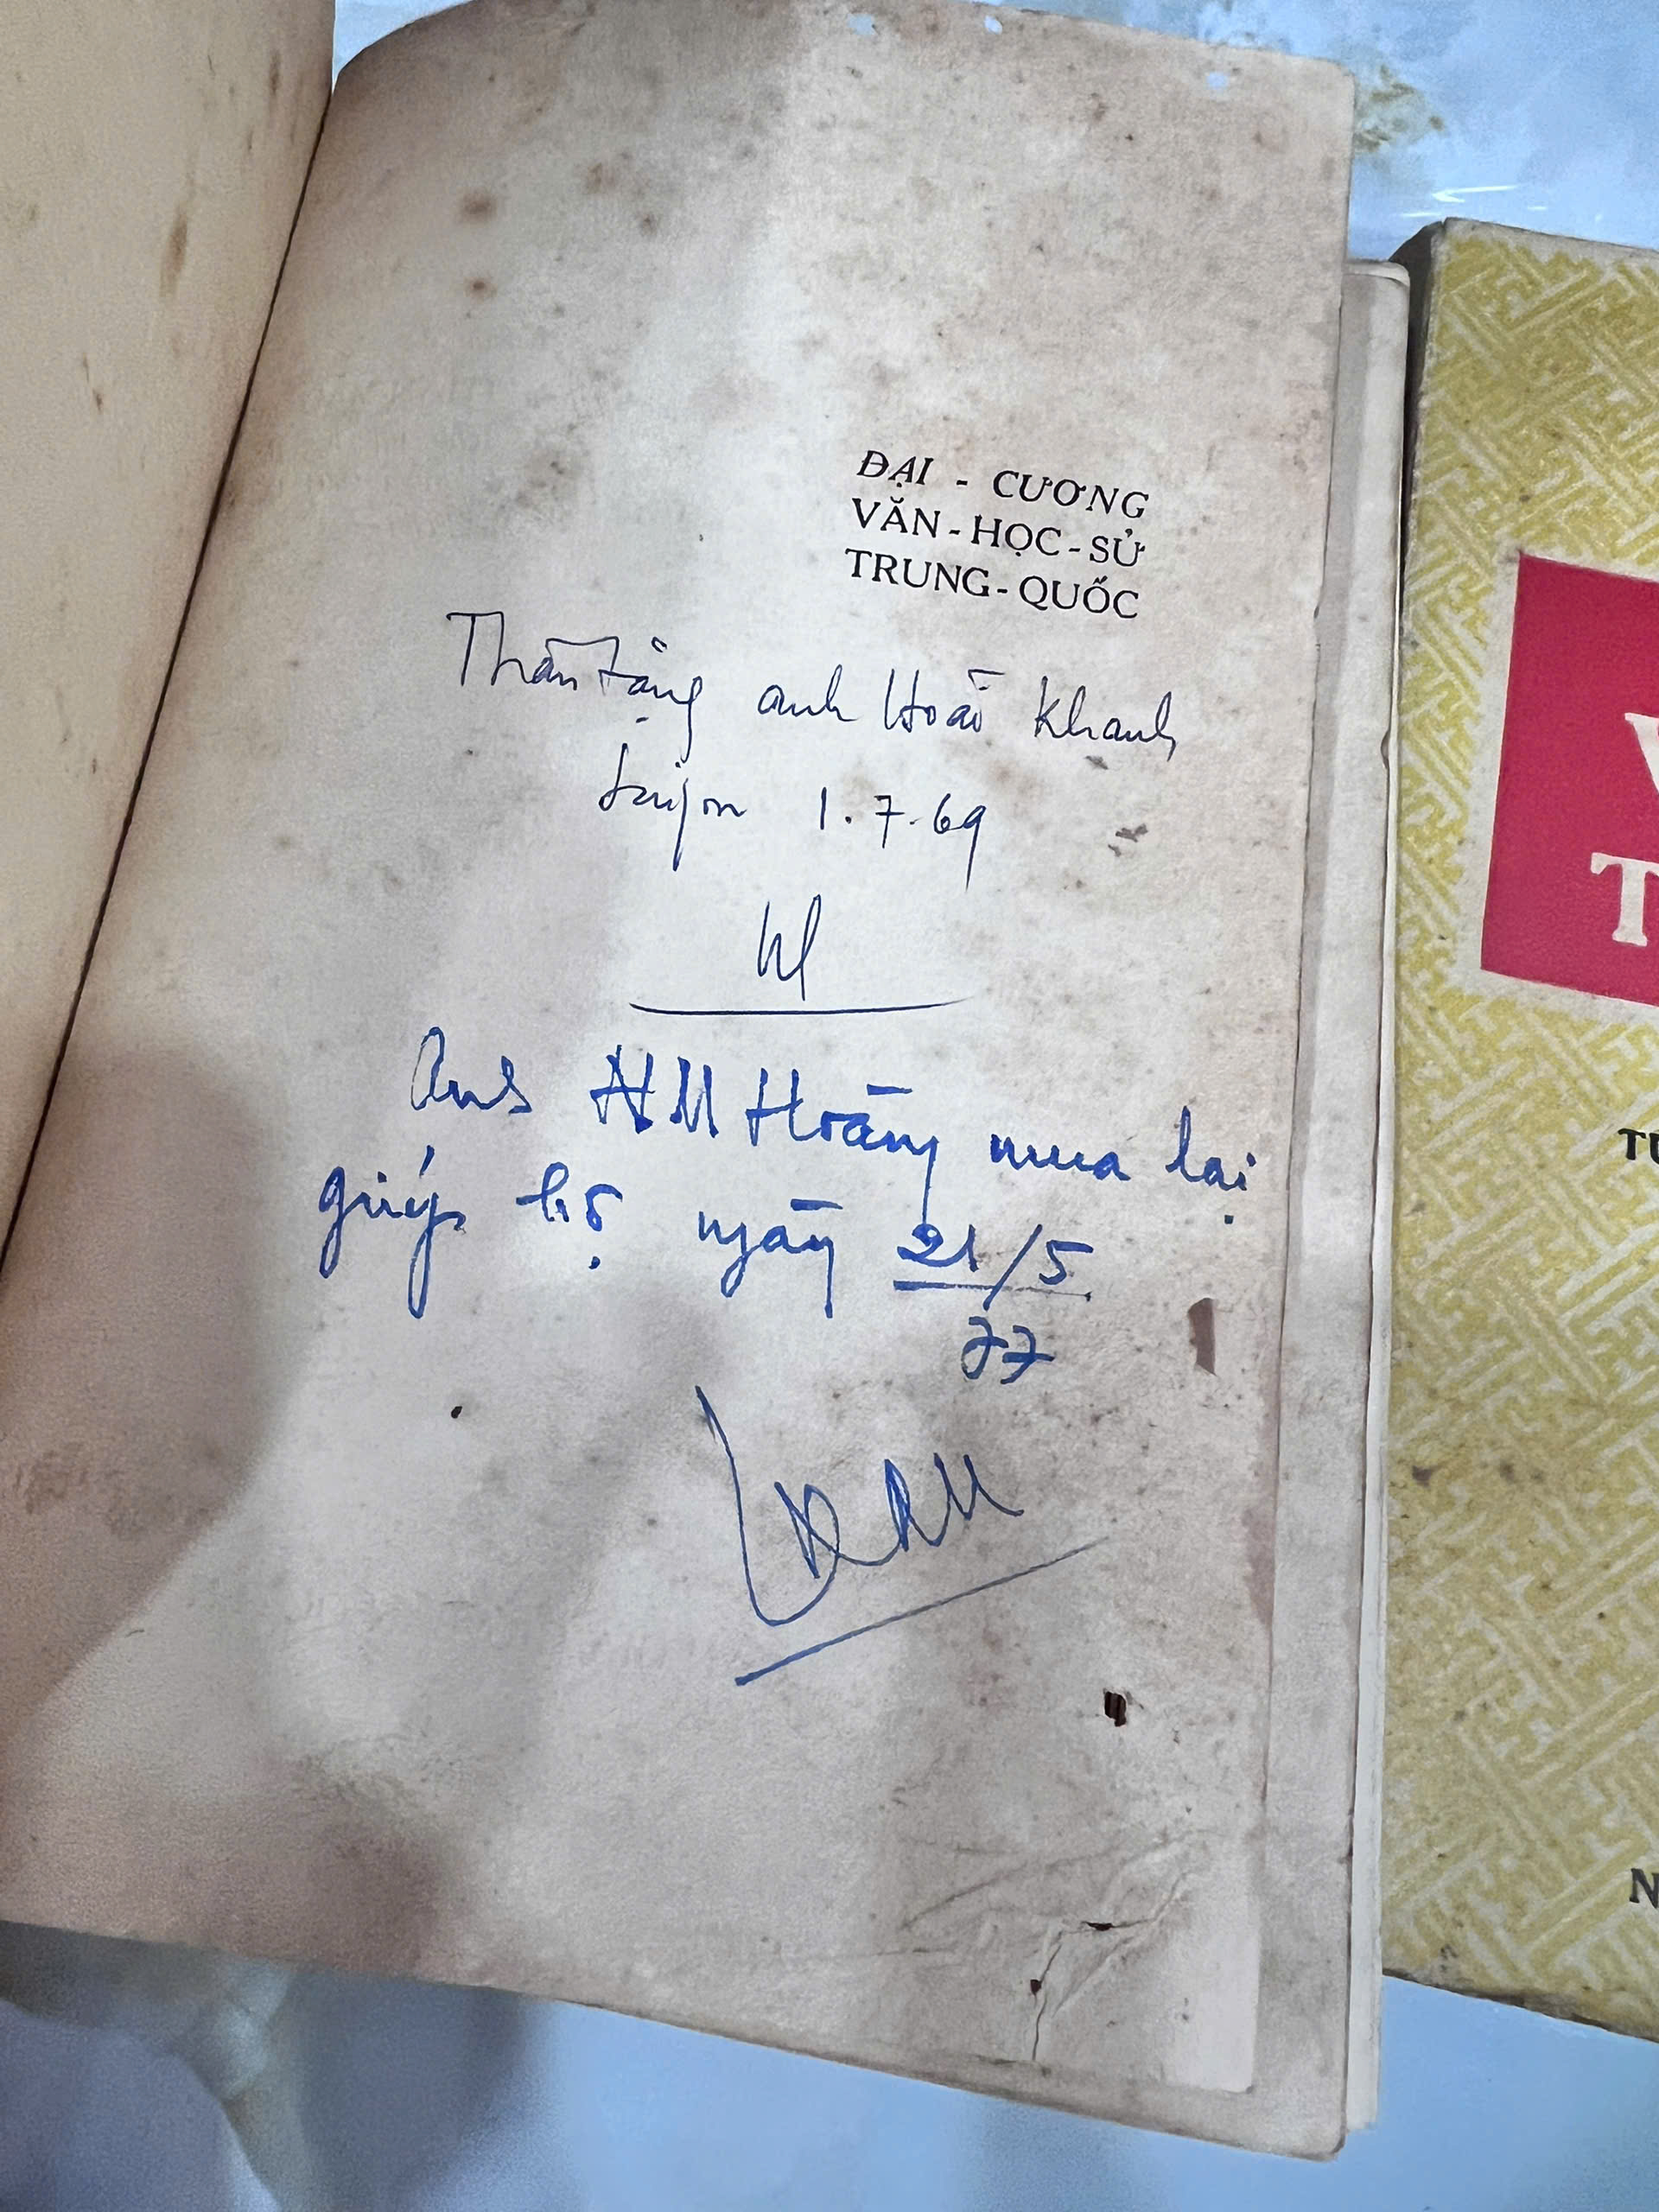 ĐẠI - CƯƠNG
VĂN - HỌC - SỬ
TRUNG - QUỐC
Thân tặng anh Hoài Khanh
Saigon 1.7.69
Anh NM Hoàng mua lại
giúp hộ ngày 21/5
77
V
T
TU
N